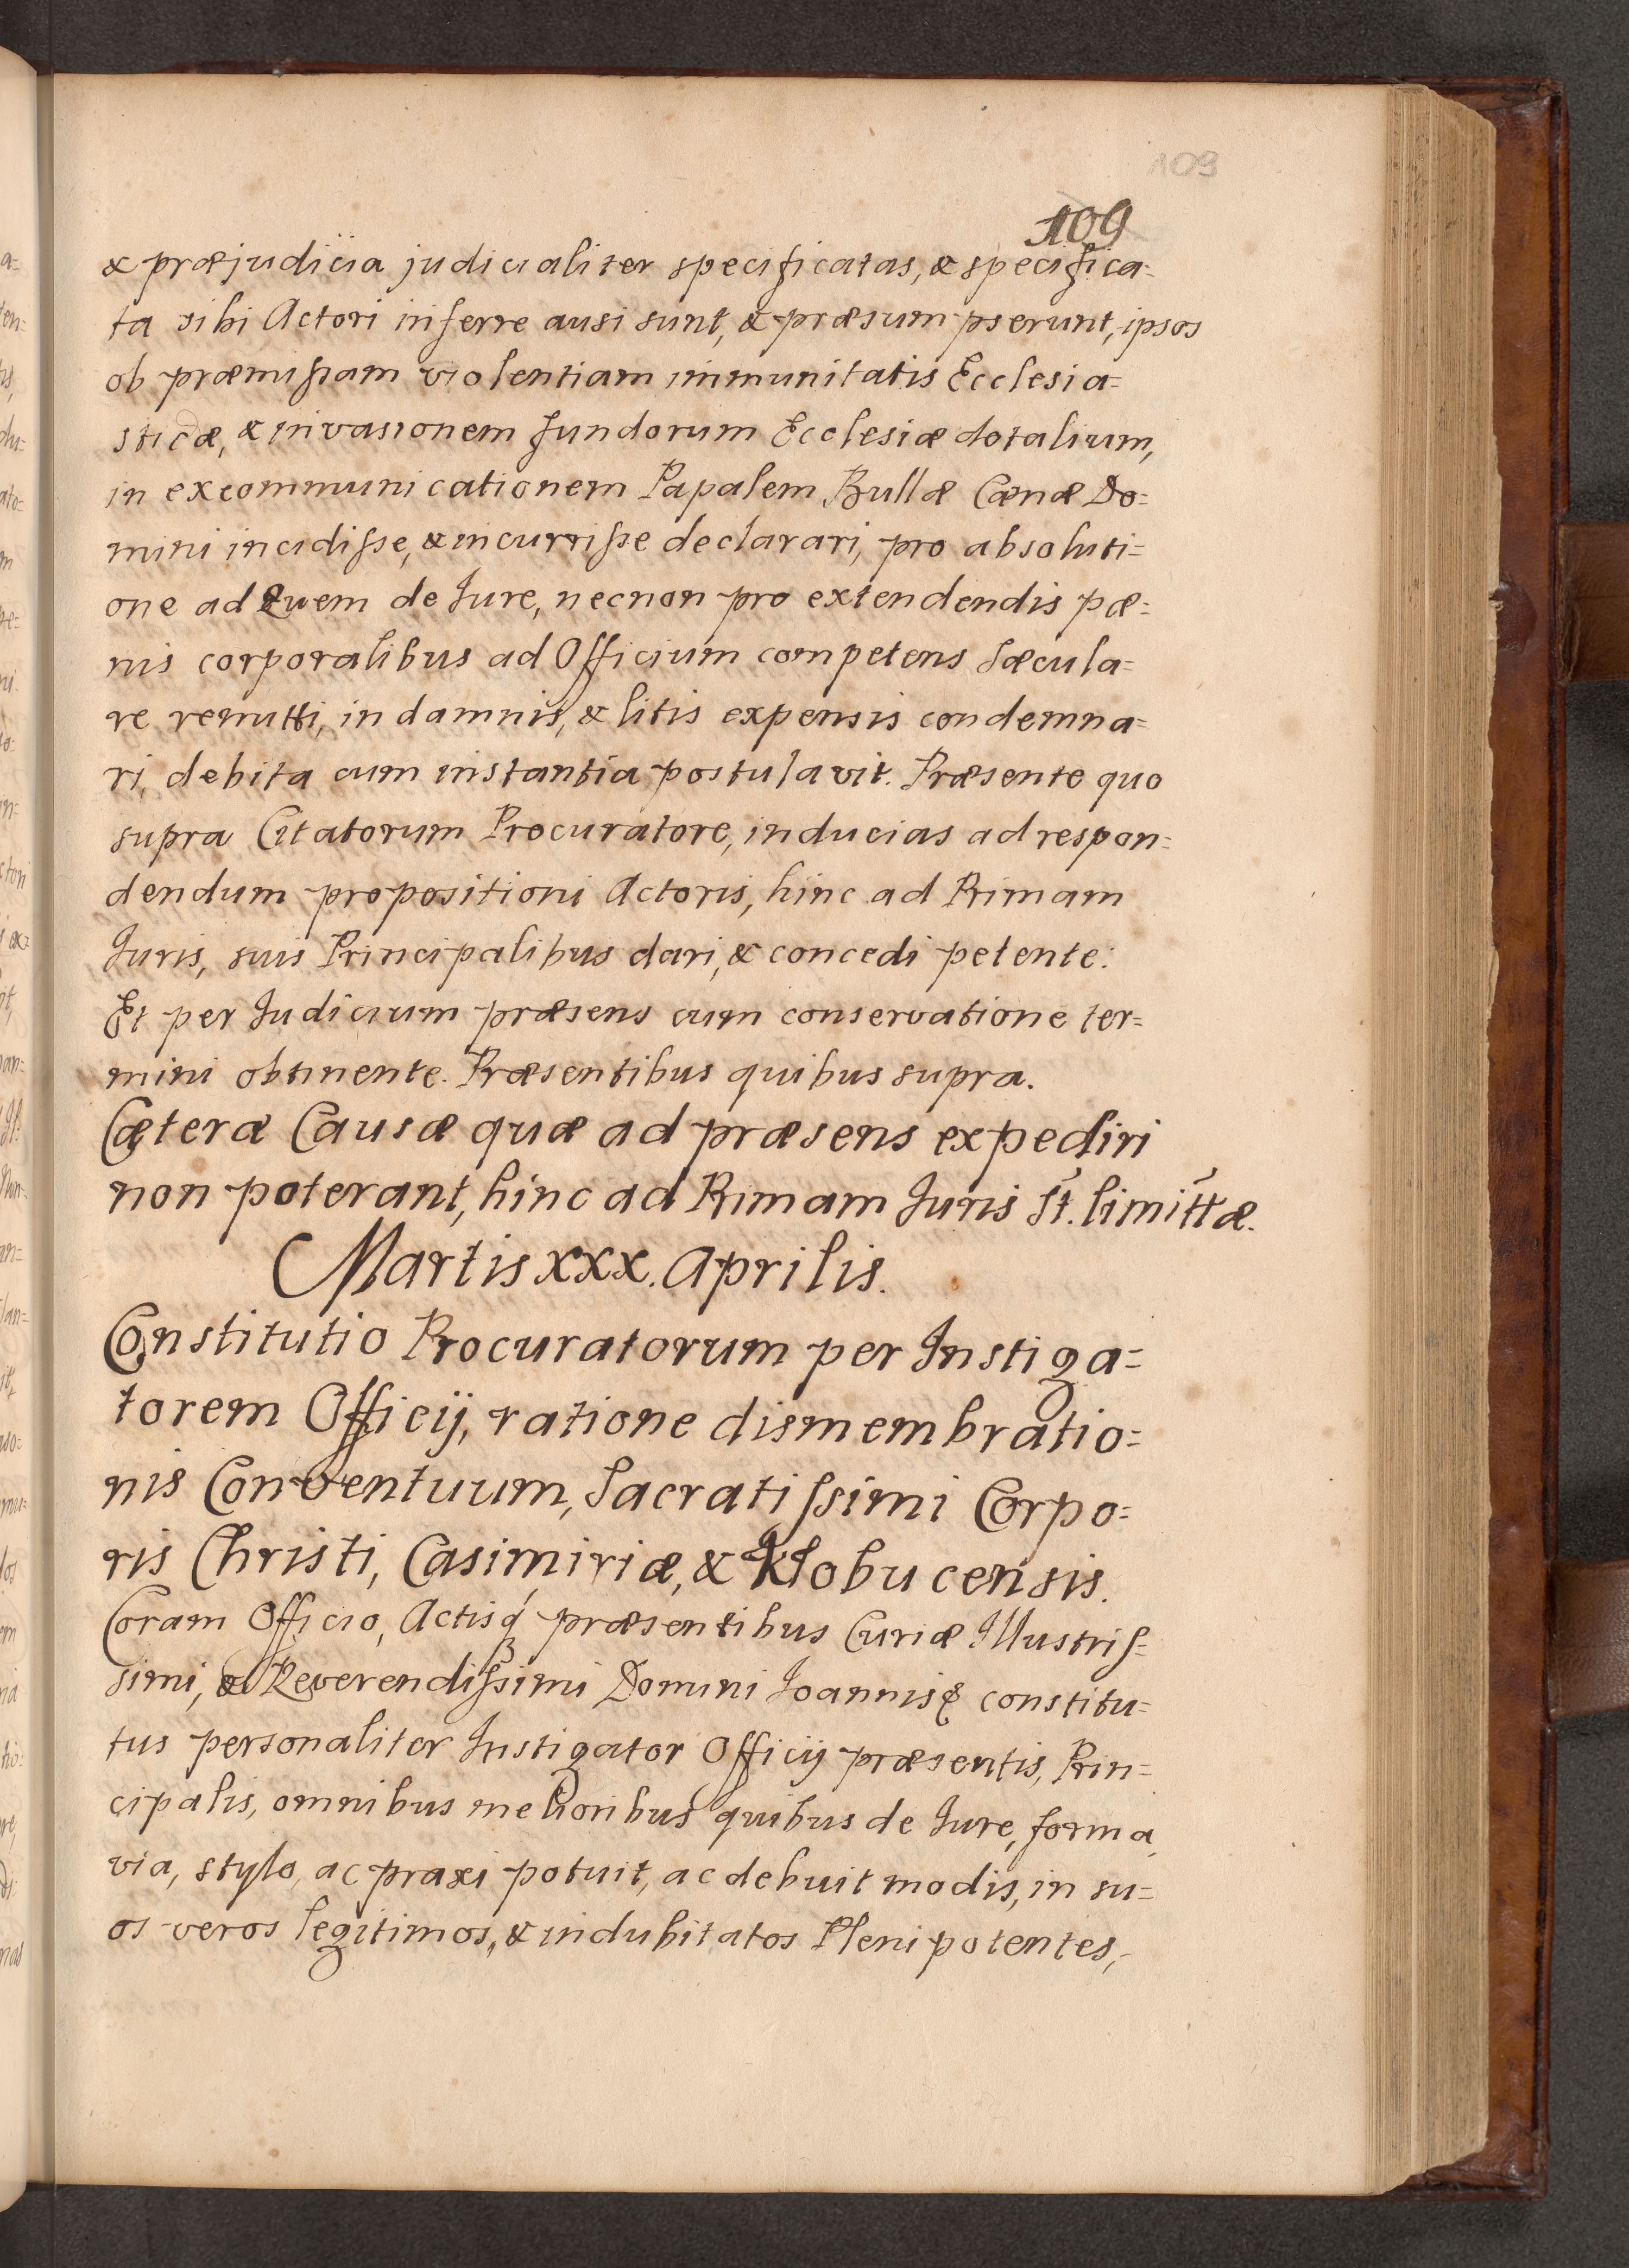 109
109
& præjudicia judicialiter specificatas, & specifica=
ta sibi Actori inferre ausi sunt, & præsumpserunt, ipsos
ob præmissam violentiam immunitatis Ecclesia=
sticæ, & invasionem fundorum Ecclesiæ dotalium,
in excommunicationem Papalem Bullæ Cænæ Do=
mini incidisse, & incurrisse declarari, pro absoluti=
one ad Quem de Jure, necnon pro extendendis pæ=
nis corporalibus ad Officium competens Sæcula=
re remitti, in damnis, & litis expensis condemna=
ri, debita cum instantia postulavit. Præsente quo
supra Citatorum Procuratore, inducias ad respon=
dendum propositioni Actoris, hinc ad Primam
Juris, suis Principalibus dari, & concedi petente:
Et per Judicium præsens cum conservatione ter=
mini obtinente. Præsentibus quibus supra.
Cæteræ Causæ quæ ad præsens expediri
non poterant, hinc ad Primam Juris st. limittæ.
Martis xxx. Aprilis.
Constitutio Procuratorum per Instiga=
torem Officij, ratione dismembratio=
nis Conventuum, Sacratissimi Corpo=
ris Christi, Casimiriæ, & Klobucensis.
Coram Officio, Actisq́ præsentibus Curiæ Illustris=
simi, & Reverendissimi Domini Joannis & constitu=
tus personaliter Instigator Officij præsentis, Prin=
cipalis, omnibus melioribus quibus de Jure, forma,
via, stylo, ac praxi potuit, ac debuit modis, in su=
os veros legitimos, & indubitatos Plenipotentes,